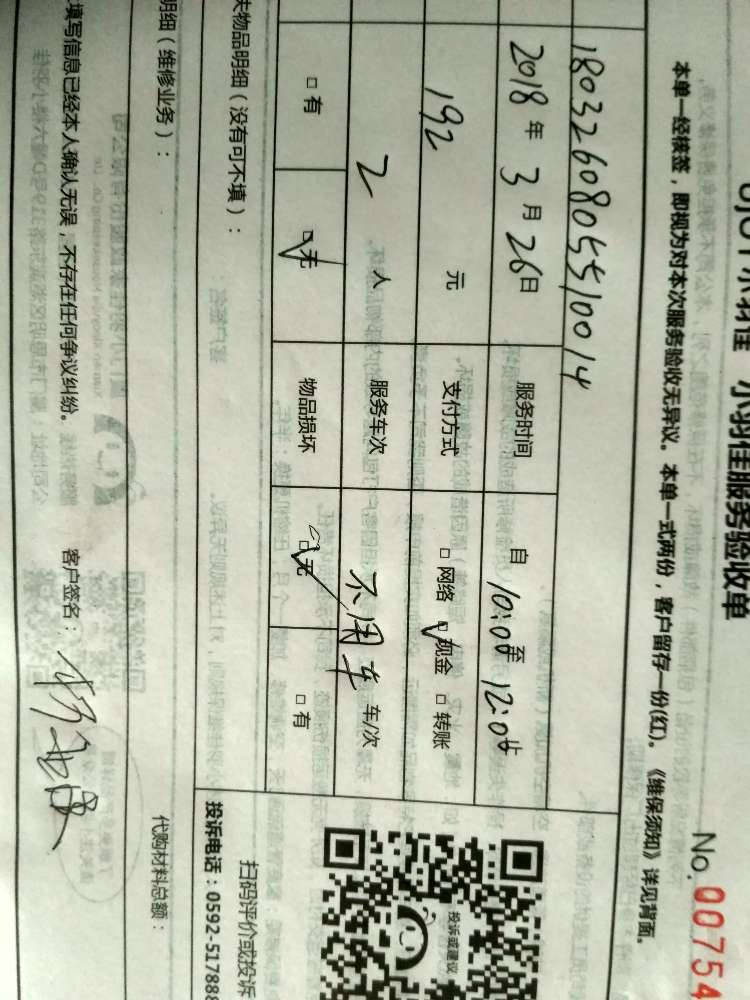 小羽佳服务验收单
No. 00754
本单一经核签，即视为对本次服务验收无异议。本单一式两份，客户留存一份(红)。《维保须知》详见背面。
1803260805510014
2018 年 3 月 26 日 服务时间 自 10:00 至 12:00
192 元 支付方式 □ 网络 □ 现金 □ 转账
2 人 服务车次 不用车 车/次
□ 有 □ 无 物品损坏 □ 无 □ 有
物品明细（没有可不填）：
明细（维修业务）：
代购材料总额：
填写信息已经本人确认无误，不存在任何争议纠纷。 客户签名：
投诉或建议
扫码评价或投诉
投诉电话：0592-517888